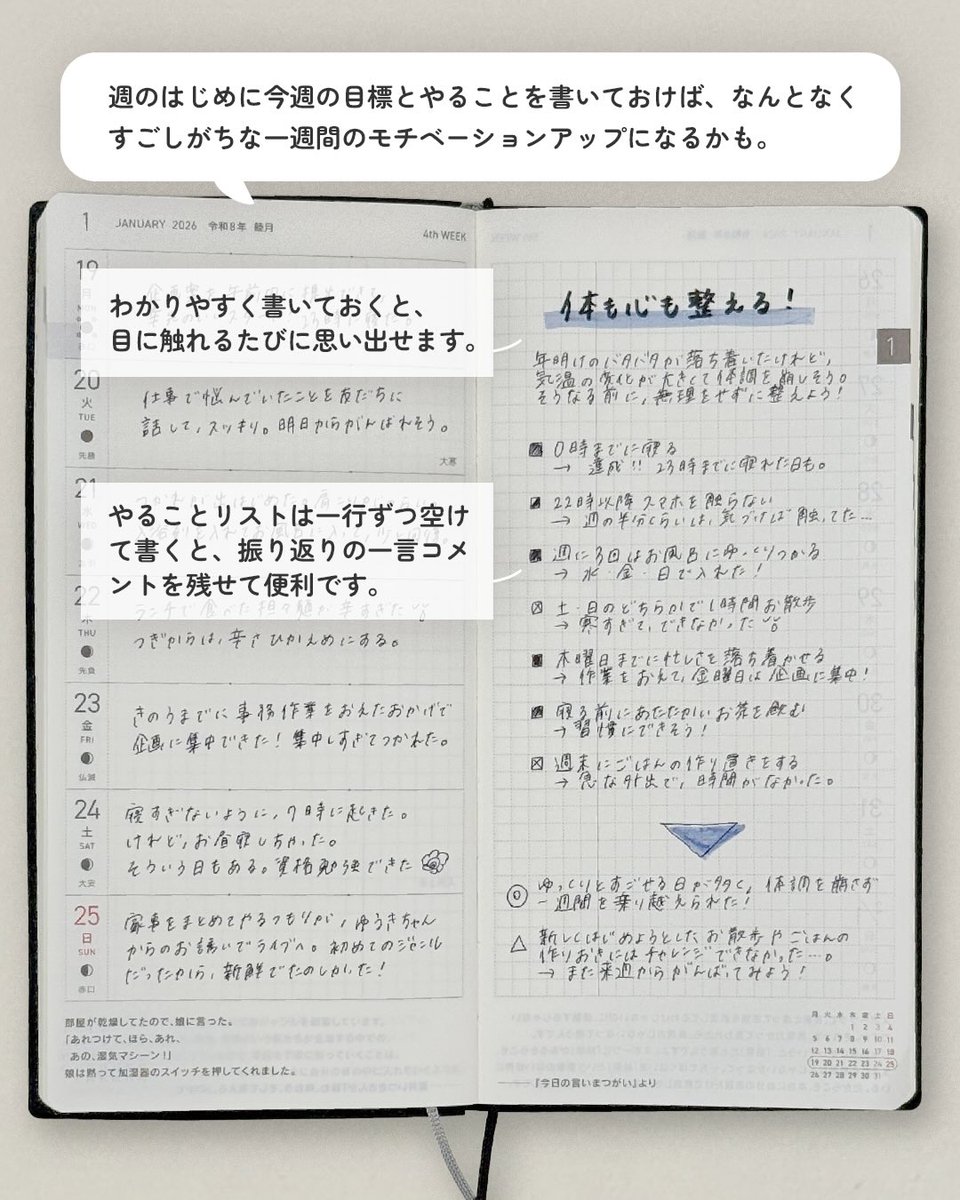 週のはじめに今週の目標とやることを書いておけば、なんとなく
すごしがちな一週間のモチベーションアップになるかも。
1 JANUARY 2026 令和8年 睦月
4th WEEK
19
月
わかりやすく書いておくと、
目に触れるたびに思い出せます。
20
火
TUE
先勝
仕事で悩んでいたことを友だちに
話して、スッキリ。明日からがんばれそう。
大寒
21
水
WED
やることリストは一行ずつ空け
て書くと、振り返りの一言コメ
ントを残せて便利です。
22
木
THU
先負
ランチで食べた担々麺が辛すぎた
つぎからは、辛さひかえめにする。
23
金
FRI
仏滅
きのうまでに事務作業をおえたおかげで
企画に集中できた!集中しすぎてつかれた。
24
土
SAT
大安
寝すぎないように、7時に起きた。
けれど、お昼寝しちゃった。
そういう日もある。資格勉強できた
25
日
SUN
赤口
家事をまとめてやるつもりが、ゆうきちゃん
からのお誘いでライブへ。初めてのジャンル
だったから、新鮮でたのしかった!
部屋が乾燥してたので、娘に言った。
「あれつけて、ほら、あれ、
あの、湿気マシーン!」
娘は黙って加湿器のスイッチを押してくれました。
体も心も整える!
1
年明けのバタバタが落ち着いたけれど、
気温の変化が大きくて体調を崩しそう。
そうなる前に、無理をせずに整えよう!
0時までに寝る
→ 達成!! 23時までに寝れた日も。
22時以降スマホを触らない
→ 週の半分くらいは、気づけば触ってた…
週に3回はお風呂にゆっくりつかる
→ 水・金・日で入れた!
土・日のどちらかで1時間お散歩
→ 寒すぎて、できなかった
木曜日までに忙しさを落ち着かせる
→ 作業をおえて、金曜日は企画に集中!
寝る前にあたたかいお茶を飲む
→ 習慣にできそう!
週末にごはんの作り置きをする
→ 急な外出で、時間がなかった。
◎ ゆっくりとすごせる日が多く、体調を崩さず
一週間を乗り越えられた!
△ 新しくはじめようとした、お散歩やごはんの
作りおきにはチャレンジできなかった…。
→ また来週からがんばってみよう!
月 火 水 木 金 土 日
1 2 3 4
5 6 7 8 9 10 11
12 13 14 15 16 17 18
19 20 21 22 23 24 25
26 27 28 29 30 31
──『今日の言いまつがい』より